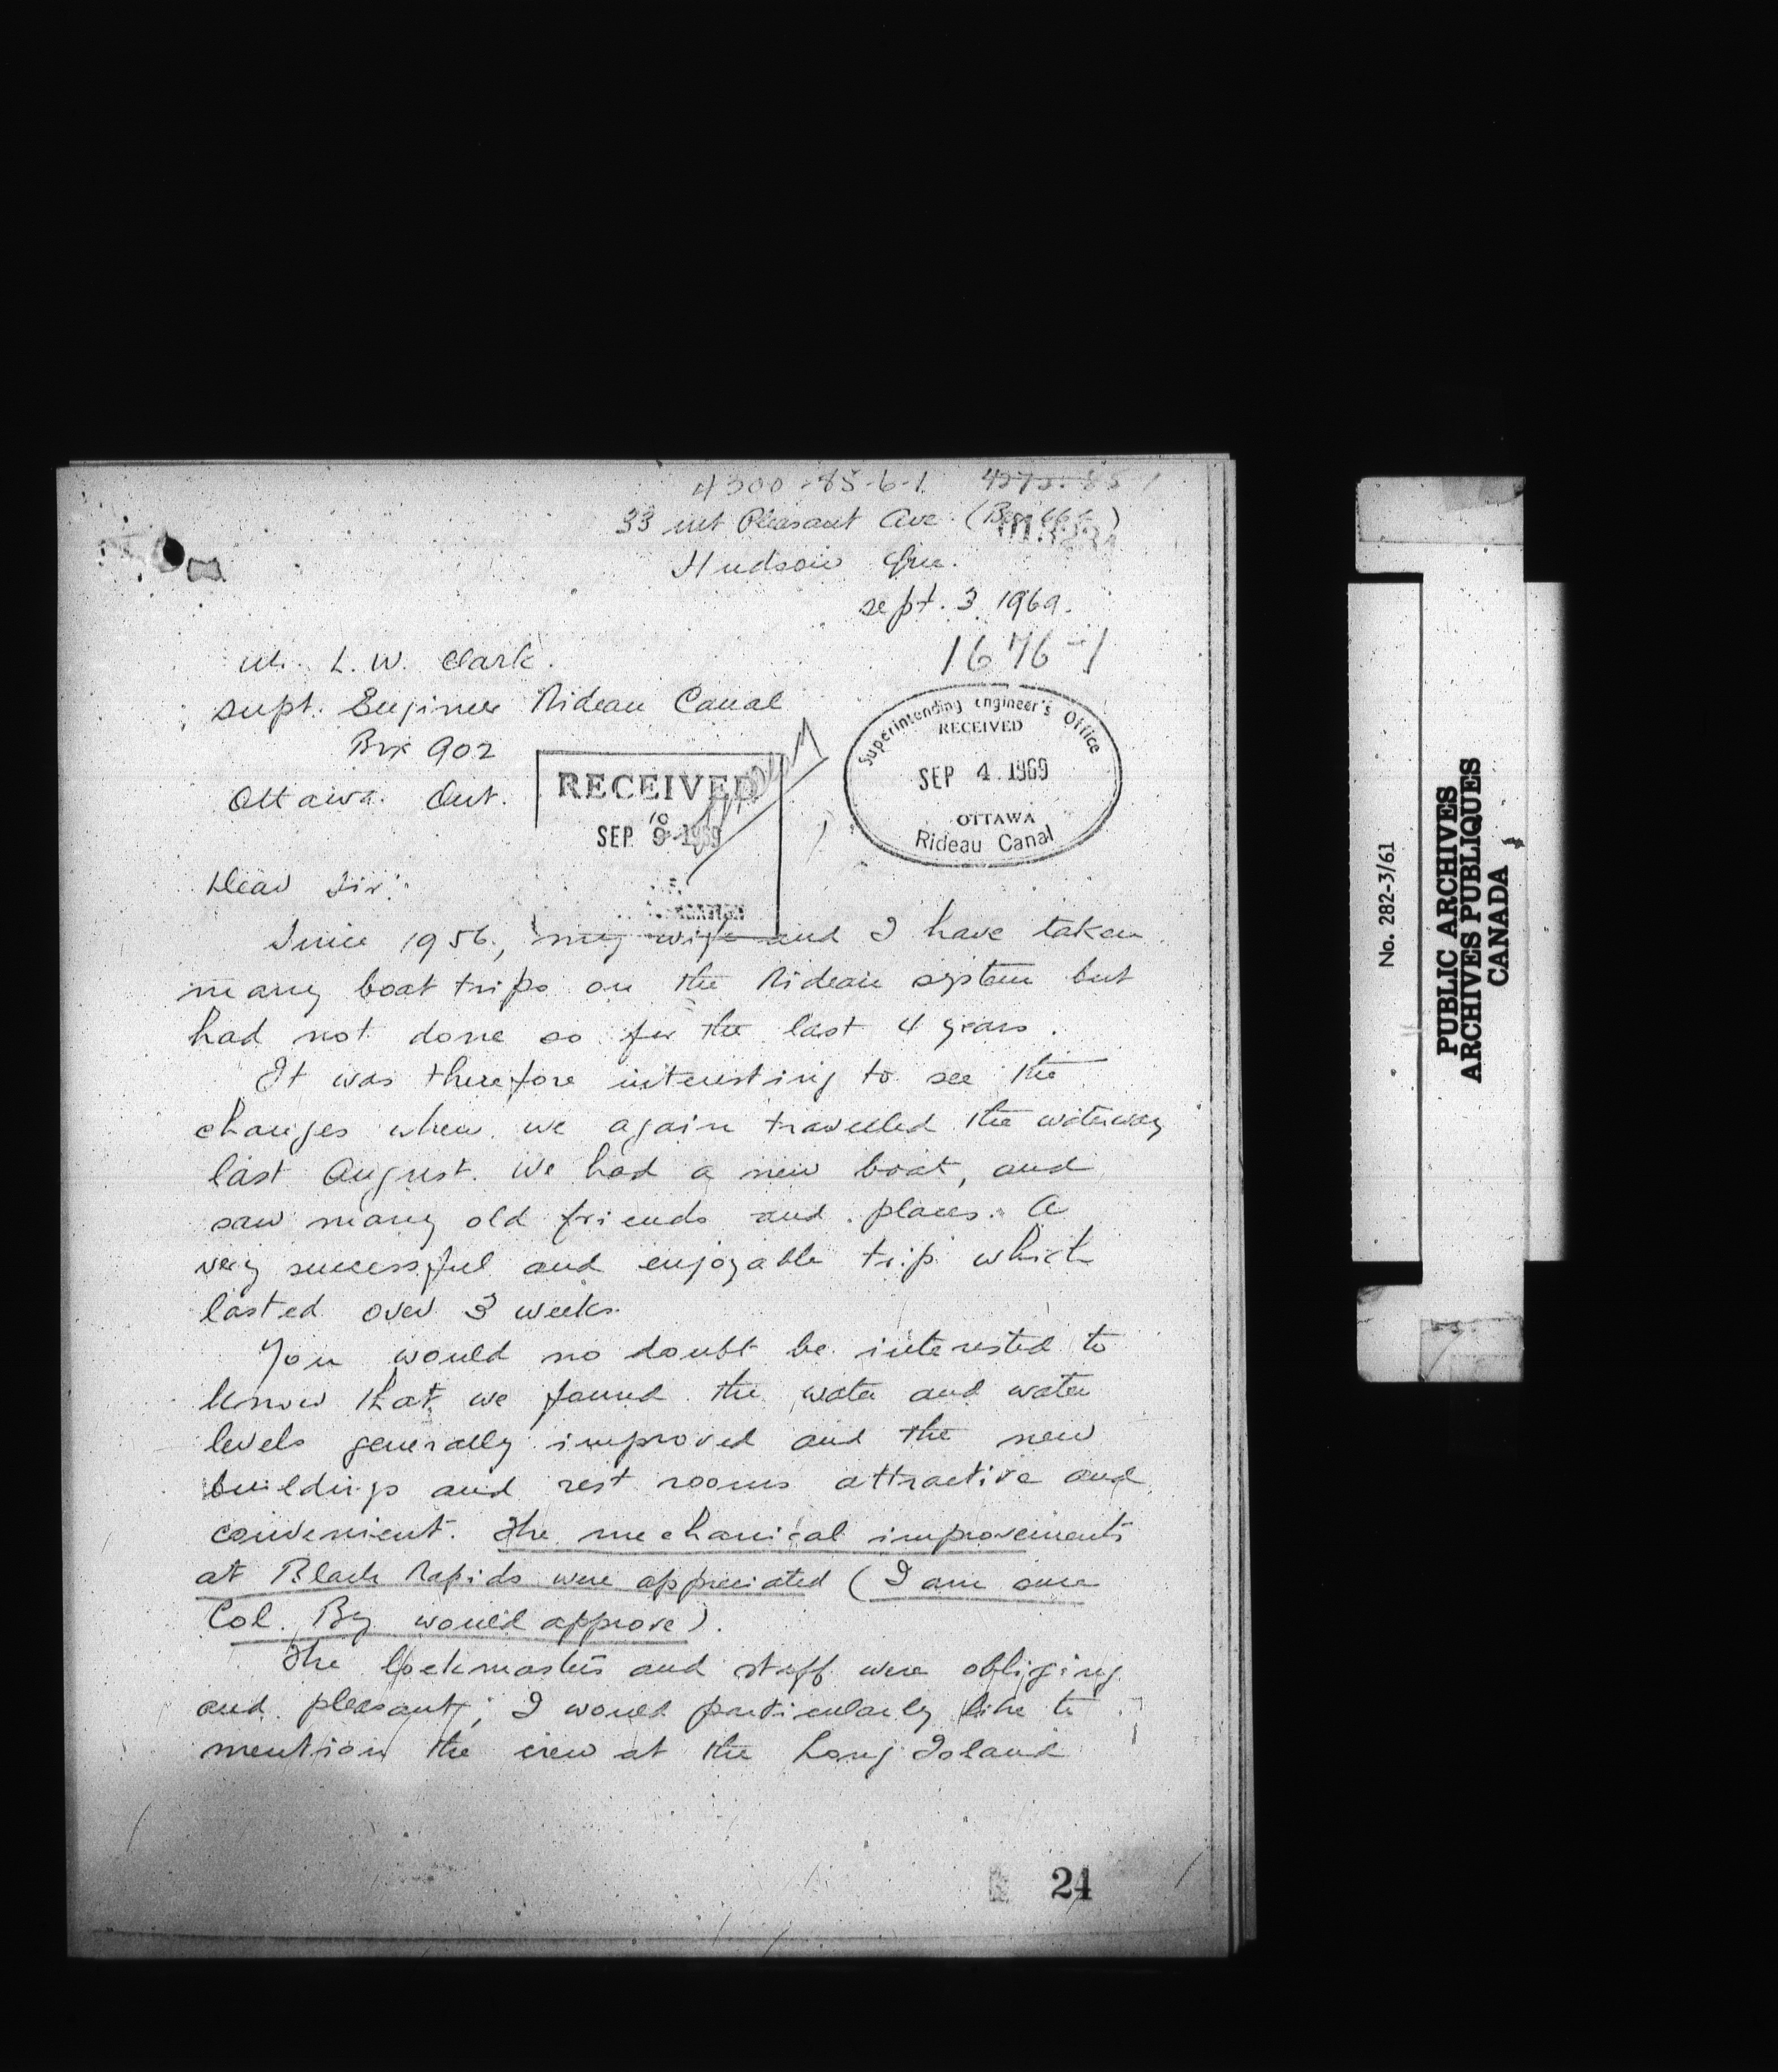 4300-85-6-1 4275-85-1
33 Mt Pleasant Ave. (Box
Hudson Que.
Sept. 3 1969.
1676-1
Mr. L. W. Clark.
Supt. Engineer Rideau Canal
Box 902
Ottawa. Ont.
RECEIVED
SEP 1969
Superintending Engineer's Office
RECEIVED
SEP 4 1969
OTTAWA
Rideau Canal
Dear Sir:
Since 1956, my wife and I have taken
many boat trips on the Rideau system but
had not done so for the last 4 years.
It was therefore interesting to see the
changes when we again travelled the waterway
last August. We had a new boat, and
saw many old friends and places. A
very successful and enjoyable trip which
lasted over 3 weeks.
You would no doubt be interested to
know that we found the water and water
levels generally improved and the new
buildings and rest rooms attractive and
convenient. The mechanical improvements
at Black Rapids were appreciated (I am sure
Col. By would approve).
The lockmasters and staff were obliging
and pleasant; I would particularly like to
mention the crew at the Long Island
24
No. 282-3/61
PUBLIC ARCHIVES
ARCHIVES PUBLIQUES
CANADA